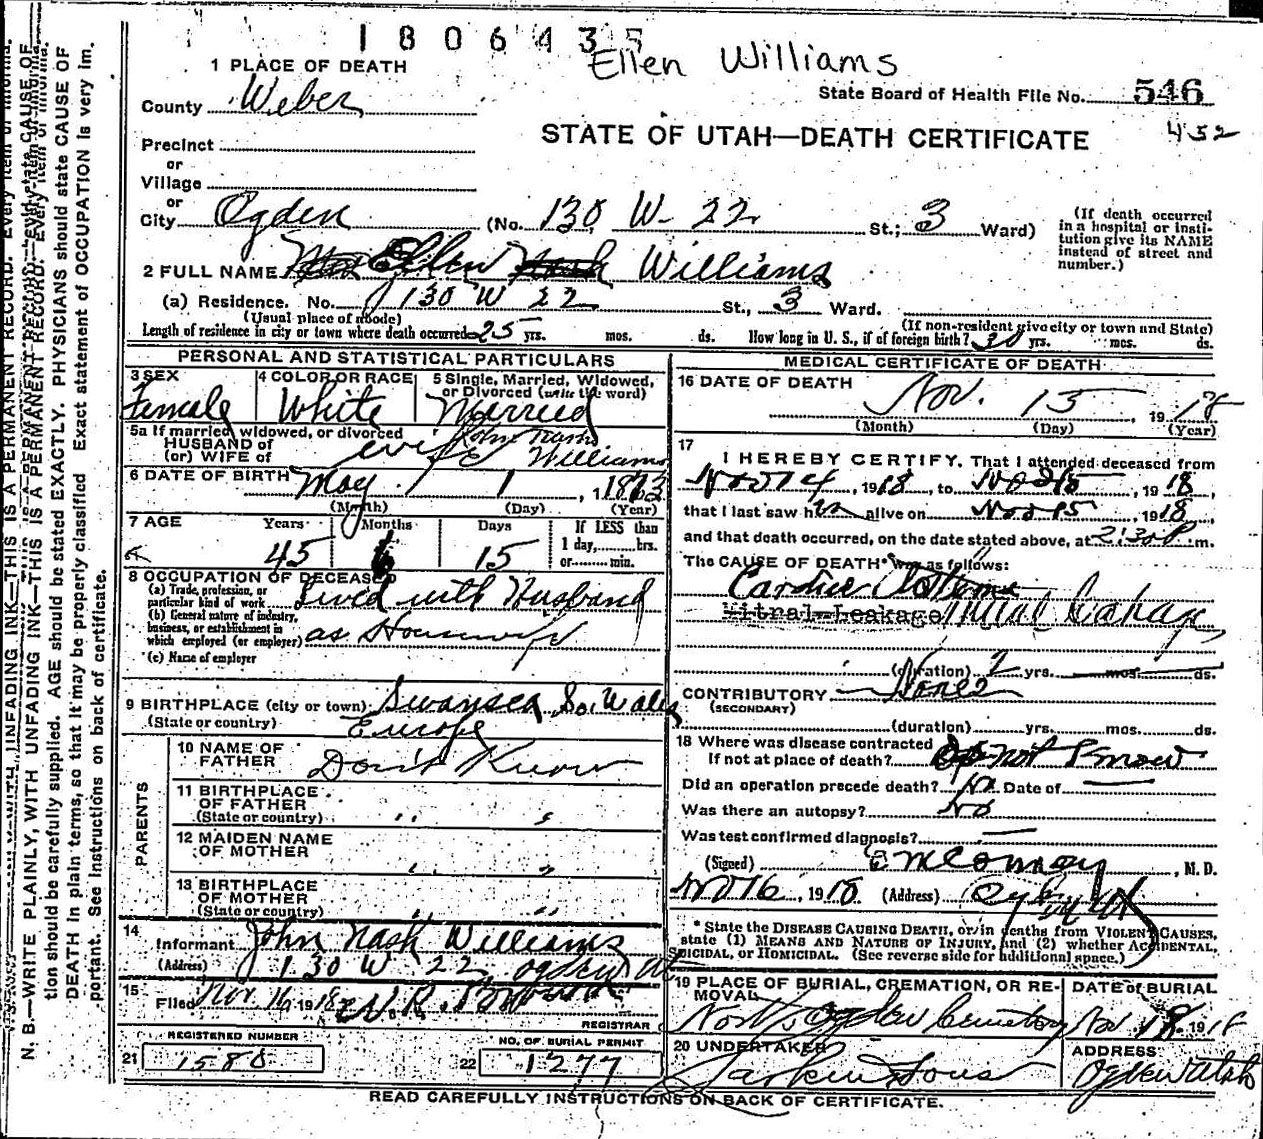 1806435
Ellen Williams
1 PLACE OF DEATH
County Weber
State Board of Health File No. 546
432
STATE OF UTAH—DEATH CERTIFICATE
Precinct
or
Village
or
City Ogden (No. 130 W- 22 St.; 3 Ward)
(If death occurred in a hospital or insti-
tution give its NAME
instead of street and
number.)
2 FULL NAME Ellen Williams
(a) Residence. No. 130 W 22 St., 3 Ward.
(Usual place of abode) (If non-resident give city or town and State)
Length of residence in city or town where death occurred 25 yrs. mos. ds. How long in U. S., if of foreign birth? 30 yrs. mos. ds.
PERSONAL AND STATISTICAL PARTICULARS
3 SEX
Female
4 COLOR OR RACE
White
5 Single, Married, Widowed,
or Divorced (write the word)
Married
5a If married, widowed, or divorced
HUSBAND of
(or) WIFE of wife John Nash Williams
6 DATE OF BIRTH May 1, 1873
(Month) (Day) (Year)
7 AGE Years Months Days
45 6 15
If LESS than
1 day,........hrs.
or........min.
8 OCCUPATION OF DECEASED
(a) Trade, profession, or
particular kind of work Lived with Husband
(b) General nature of industry,
business, or establishment in
which employed (or employer) as Housewife
(c) Name of employer
9 BIRTHPLACE (city or town) Swansea So. Wales
(State or country) Europe
PARENTS
10 NAME OF
FATHER Don't Know
11 BIRTHPLACE
OF FATHER
(State or country) " "
12 MAIDEN NAME
OF MOTHER " "
13 BIRTHPLACE
OF MOTHER
(State or country) " "
14
Informant John Nash Williams
(Address) 130 W 22, Ogden Ut
15
Filed Nov. 16, 1918 W. R.
REGISTRAR
REGISTERED NUMBER
21 1580
NO. OF BURIAL PERMIT
22 1277
MEDICAL CERTIFICATE OF DEATH
16 DATE OF DEATH Nov. 15, 1918
(Month) (Day) (Year)
17
I HEREBY CERTIFY, That I attended deceased from
Nov 14, 1918, to Nov 15, 1918,
that I last saw h alive on Nov 15, 1918,
and that death occurred, on the date stated above, at 2:30 P m.
The CAUSE OF DEATH* was as follows:
Cardiac
Mitral Leakage Mitral Leakage
(duration) 2 yrs. mos. ds.
CONTRIBUTORY None
(SECONDARY)
(duration) yrs. mos. ds.
18 Where was disease contracted
If not at place of death? Do not Know
Did an operation precede death? No Date of —
Was there an autopsy? No
Was test confirmed diagnosis? —
(Signed) E M Conroy, M. D.
Nov 16, 1918 (Address)
* State the DISEASE CAUSING DEATH, or in deaths from VIOLENT CAUSES,
state (1) MEANS AND NATURE OF INJURY, and (2) whether ACCIDENTAL,
SUICIDAL, OR HOMICIDAL. (See reverse side for additional space.)
19 PLACE OF BURIAL, CREMATION, OR RE-
MOVAL
North Ogden Cemetery
DATE of BURIAL
Nov 18, 1918
20 UNDERTAKER
Larkin & Sons
ADDRESS
Ogden Utah
READ CAREFULLY INSTRUCTIONS ON BACK OF CERTIFICATE.
N. B.—WRITE PLAINLY, WITH UNFADING INK—THIS IS A PERMANENT RECORD. Every item of informa-
tion should be carefully supplied. AGE should be stated EXACTLY. PHYSICIANS should state CAUSE OF
DEATH in plain terms, so that it may be properly classified. Exact statement of OCCUPATION is very im-
portant. See Instructions on back of certificate.